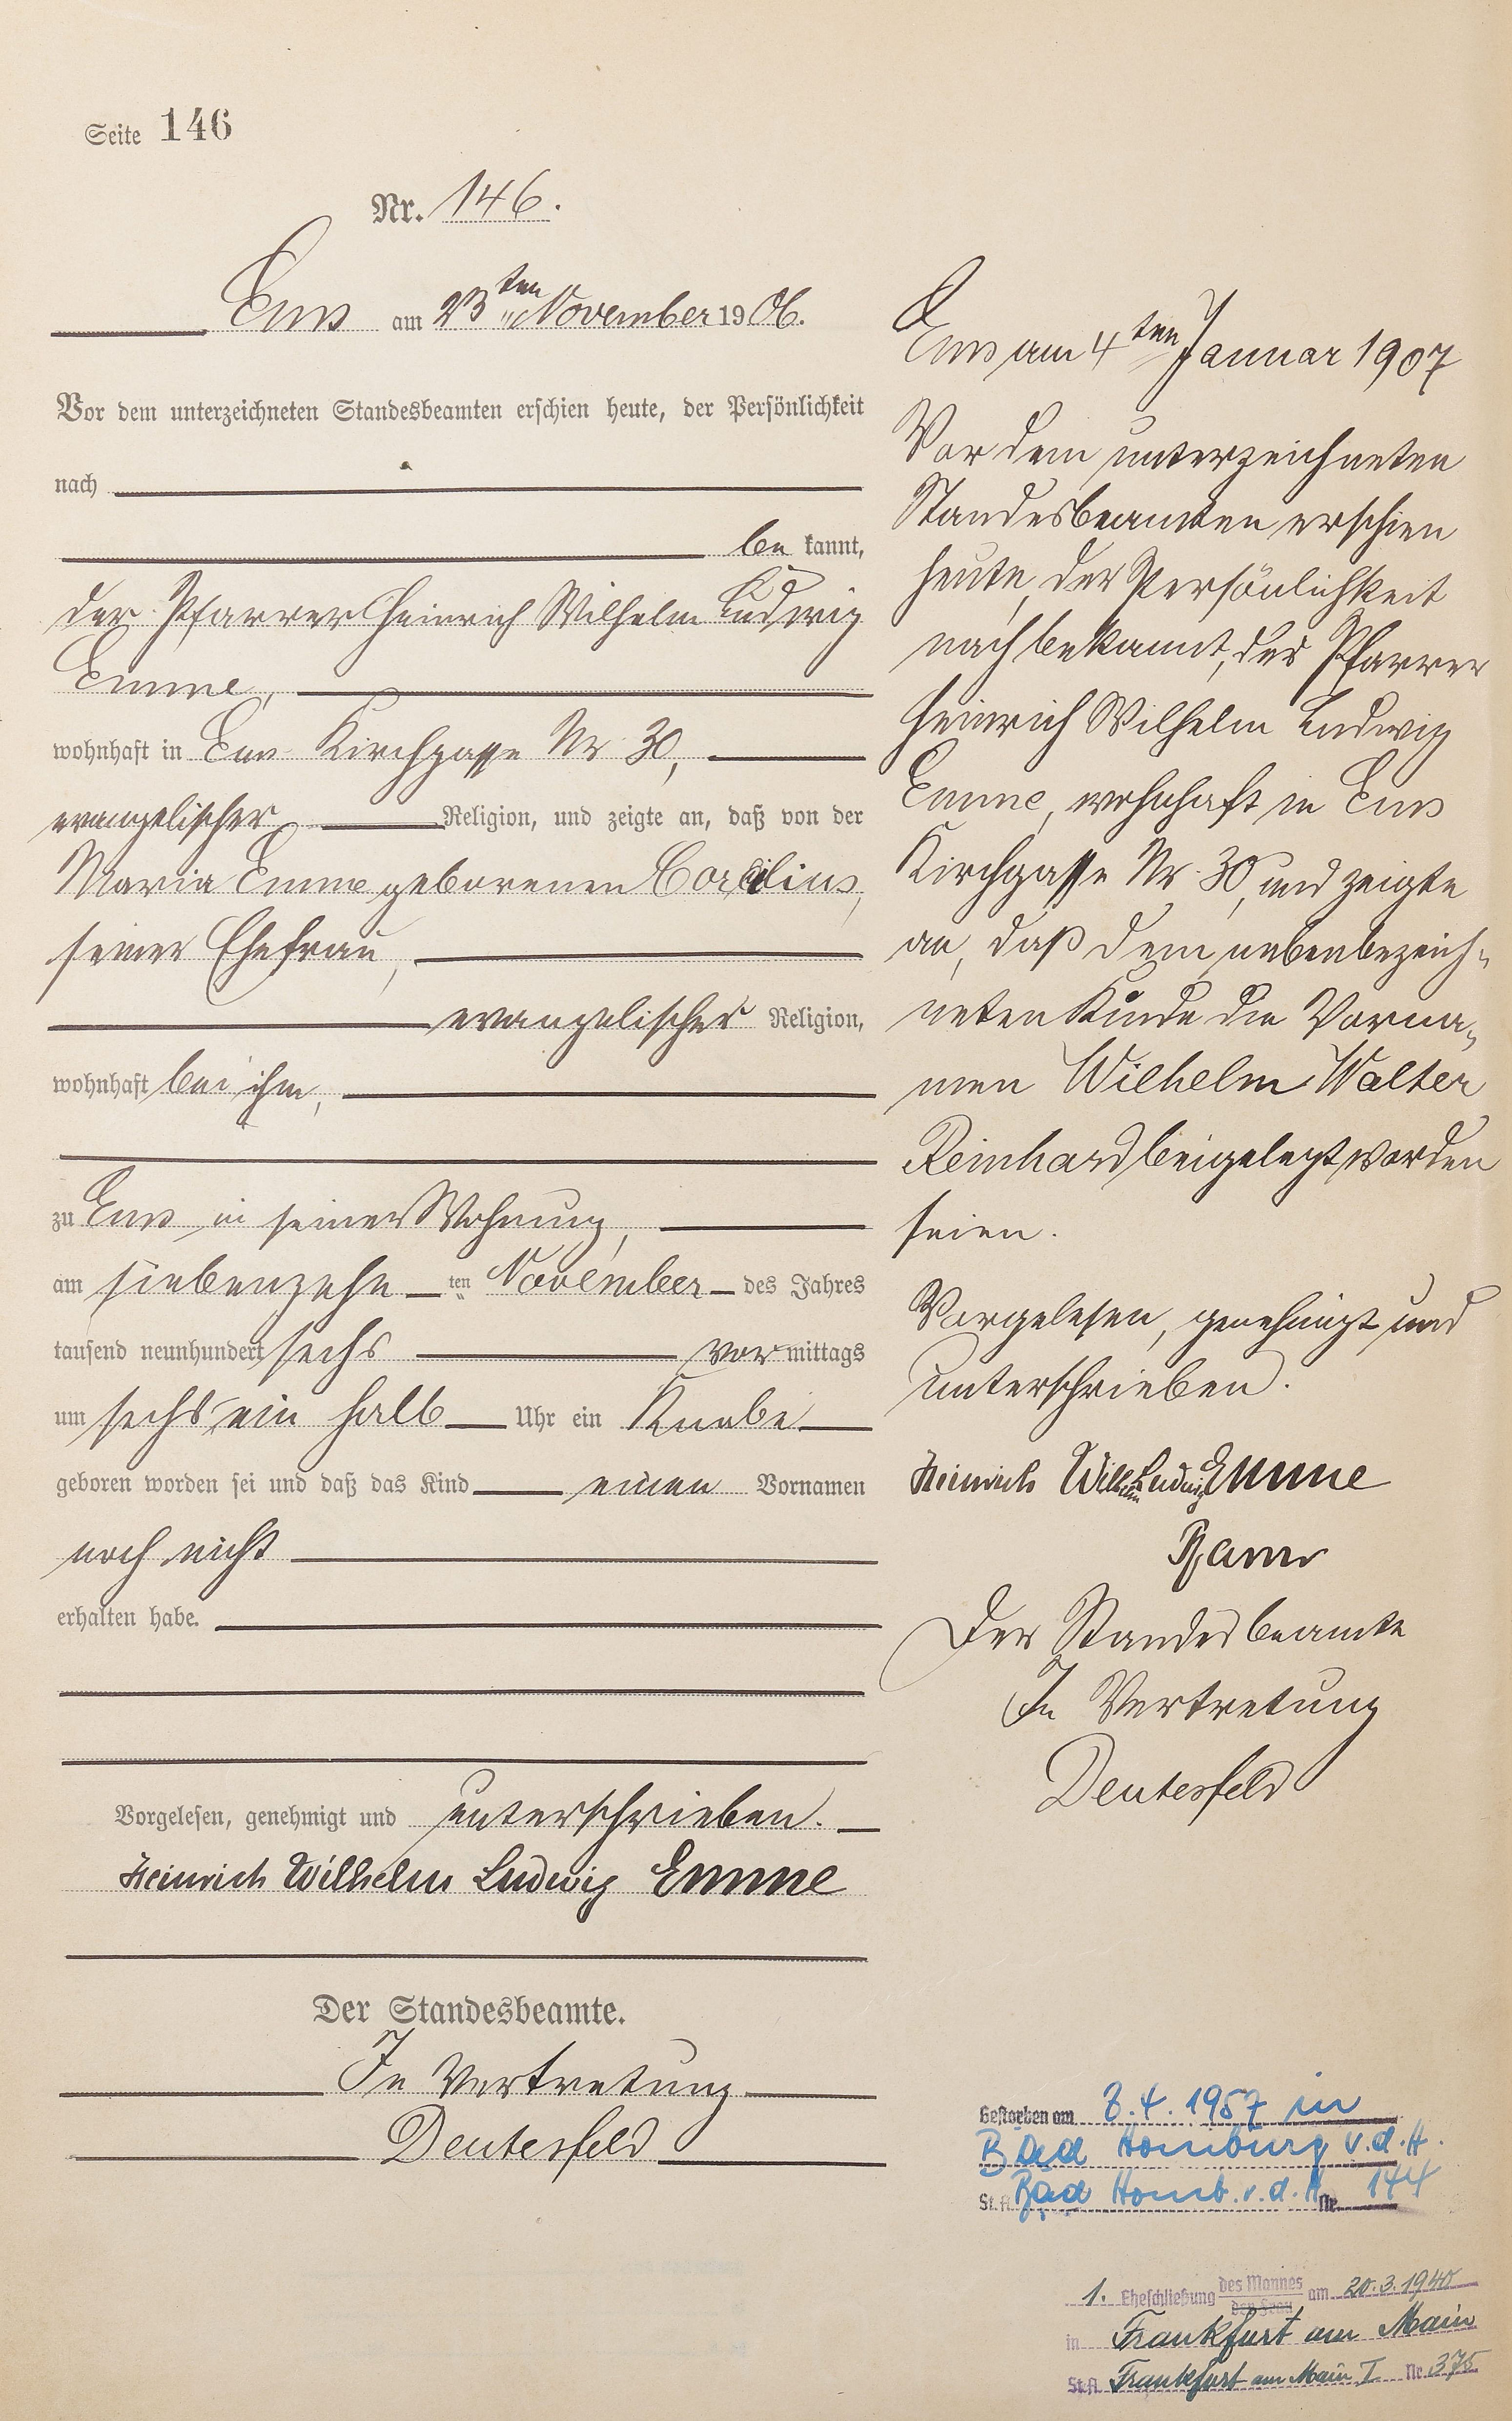 Seite 146
Nr. 146.
Ems am 23ten November 1906.
Vor dem unterzeichneten Standesbeamten erschien heute, der Persönlichkeit
nach
be kannt,
der Pfarrer Heinrich Wilhelm Ludwig
Emme,
wohnhaft in Ems Kirchgasse Nr. 30,
evangelischer Religion, und zeigte an, daß von der
Maria Emme geborenen
seiner Ehefrau,
evangelischer Religion,
wohnhaft bei ihm,
zu Ems in seiner Wohnung,
am siebenzehn ten November des Jahres
tausend neunhundert sechs vor mittags
um sechs ein halb Uhr ein Knabe
geboren worden sei und daß das Kind einen Vornamen
noch nicht
erhalten habe.
Vorgelesen, genehmigt und unterschrieben.
Heinrich Wilhelm Ludwig Emme
Der Standesbeamte.
In Vertretung
Deutesfeld
Ems am 4ten Januar 1907
Vor dem unterzeichneten
Standesbeamten erschien
heute, der Persönlichkeit
nach bekannt, der Pfarrer
Heinrich Wilhelm Ludwig
Emme, wohnhaft in Ems
Kirchgasse Nr. 30, und zeigte
an, daß dem nebenbezeich-
neten Kinde die Vorna-
men Wilhelm Walter
Reinhard beigelegt worden
seien.
Vorgelesen, genehmigt und
unterschrieben.
Heinrich Wilhelm Ludwig Emme
Pfarrer
Der Standesbeamte
In Vertretung
Deutesfeld
Gestorben am 8.4.1957 in
Bad Homburg v.d.H.
St.A. Bad Homb. v.d.H. Nr. 144
1. Eheschließung des Mannes der Frau am 20.3.1940
in Frankfurt am Main
St.A. Frankfurt am Main I Nr. 375